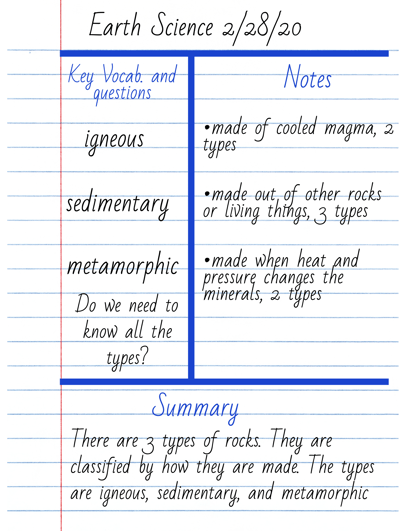 Earth Science 2/28/20
Key Vocab. and
questions
Notes
igneous
•made of cooled magma, 2
types
sedimentary
•made out of other rocks
or living things, 3 types
metamorphic
•made when heat and
pressure changes the
minerals, 2 types
Do we need to
know all the
types?
Summary
There are 3 types of rocks. They are
classified by how they are made. The types
are igneous, sedimentary, and metamorphic